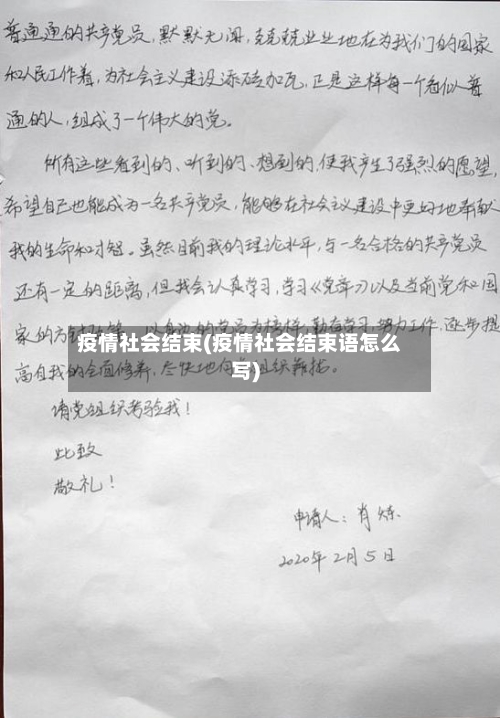 普通通的共产党员，默默无闻，兢兢业业地在为我们的国家
和人民工作着，为社会主义建设添砖加瓦，正是这样每一个看似普
通的人，组成了一个伟大的党。
所有这些看到的、听到的、想到的，使我产生了强烈的愿望，
希望自己也能成为一名共产党员，能够在社会主义建设中更好地奉献
我的生命和才智。虽然目前我的理论水平，与一名合格的共产党员
还有一定的距离，但我会认真学习，学习《党章》以及当前党和国
家的方针政策，以身边的党员为榜样，勤奋学习，努力工作，逐步提
疫情社会结束(疫情社会结束语怎么
写)
高自我的全面修养，尽快地向党组织靠拢。
请党组织考验我！
此致
敬礼！
申请人：肖炼
2020年2月5日